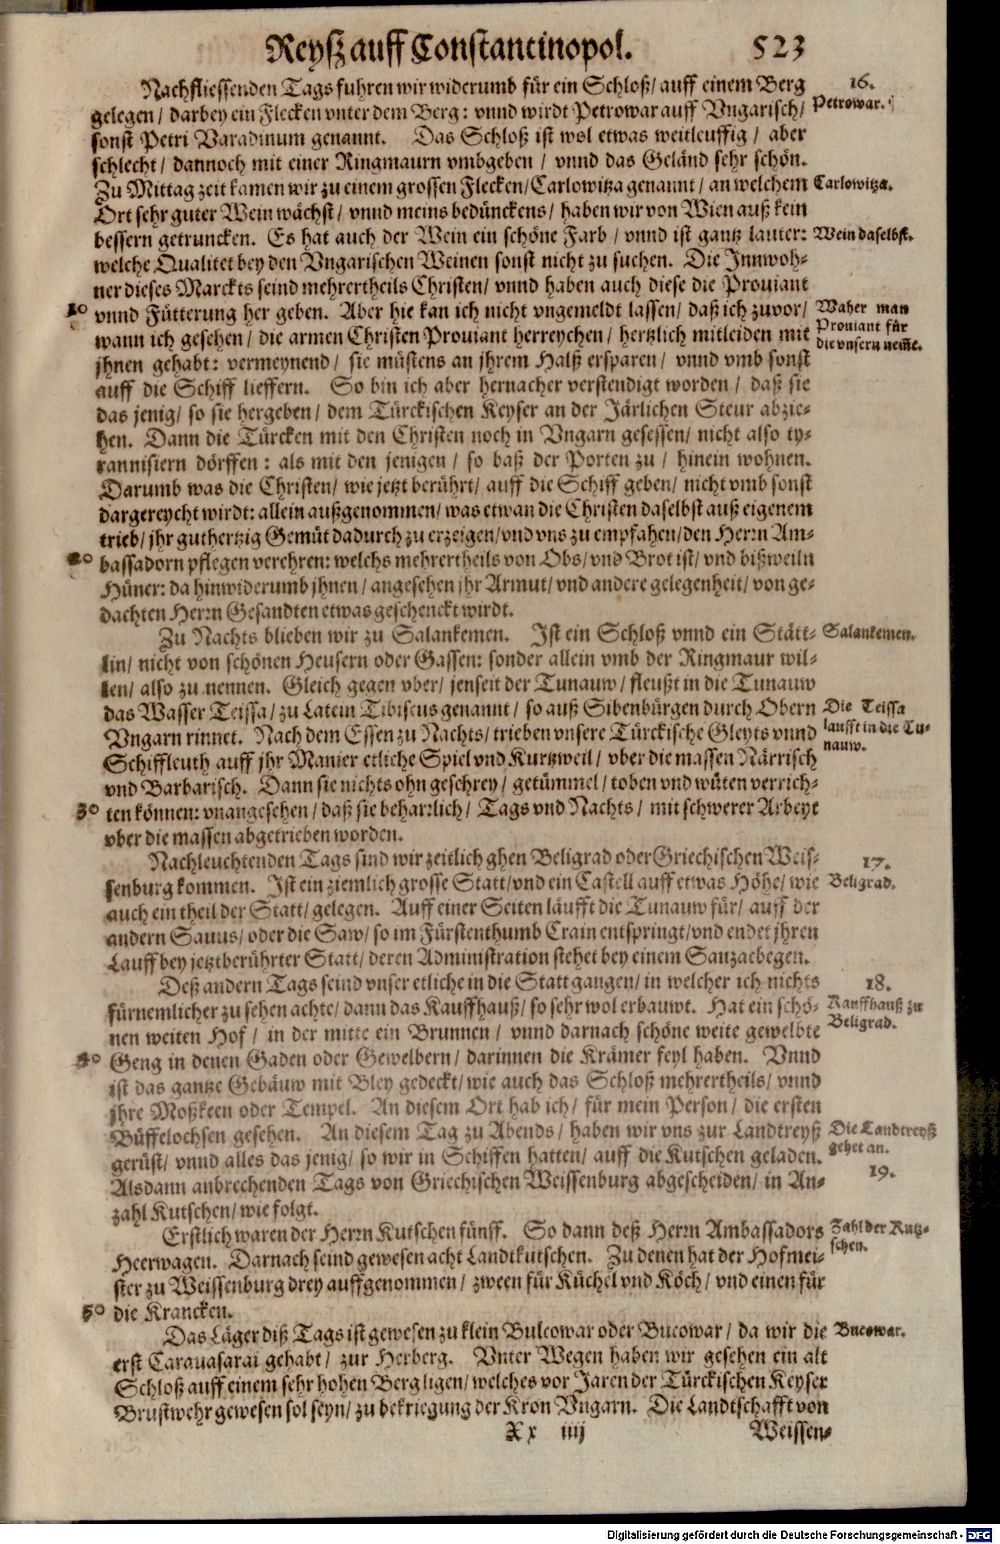 Reyß auff Constantinopol. 523
Nachfliessenden Tags fuhren wir widerumb für ein Schloß/ auff einem Berg 16.
gelegen/ darbey ein Flecken vnter dem Berg: vnnd wirdt Petrowar auff Vngarisch/ Petrowar.
sonst Petri Varadinum genannt. Das Schloß ist wol etwas weitleuffig/ aber
schlecht/ dannoch mit einer Ringmaurn vmbgeben/ vnnd das Geländ sehr schön.
Zu Mittag zeit kamen wir zu einem grossen Flecken/ Carlowitza genannt/ an welchem Carlowitza.
Ort sehr guter Wein wächst/ vnnd meins bedünckens/ haben wir von Wien auß kein
bessern getruncken. Es hat auch der Wein ein schöne Farb/ vnnd ist gantz lauter: Wein daselbst.
welche Qualitet bey den Vngarischen Weinen sonst nicht zu suchen. Die Innwoh-
ner dieses Marckts seind mehrertheils Christen/ vnnd haben auch diese die Prouiant
10 vnnd Fütterung her geben. Aber hie kan ich nicht vngemeldt lassen/ daß ich zuvor/ Waher man
wann ich gesehen/ die armen Christen Prouiant herreychen/ hertzlich mitleiden mit Prouiant für
jhnen gehabt: vermeynend/ sie müstens an jhrem Halß ersparen/ vnnd vmb sonst die vnsern neme.
auff die Schiff lieffern. So bin ich aber hernacher verstendigt worden/ daß sie
das jenig/ so sie hergeben/ dem Türckischen Keyser an der Järlichen Steur abzie-
hen. Dann die Türcken mit den Christen noch in Vngarn gesessen/ nicht also ty-
rannisiern dörffen: als mit den jenigen/ so baß der Porten zu/ hinein wohnen.
Darumb was die Christen/ wie jetzt berührt/ auff die Schiff geben/ nicht vmb sonst
dargereycht wirdt: allein außgenommen/ was etwan die Christen daselbst auß eigenem
trieb/ jhr guthertzig Gemüt dadurch zu erzeigen/ vnd vns zu empfahen/ den Herrn Am-
20 bassadorn pflegen verehren: welchs mehrertheils von Obs/ vnd Brot ist/ vnd bißweiln
Hüner: da hinwiderumb jhnen/ angesehen jhr Armut/ vnd andere gelegenheit/ von ge-
dachten Herrn Gesandten etwas geschenckt wirdt.
Zu Nachts blieben wir zu Salankemen. Ist ein Schloß vnnd ein Stätt- Salankemen.
lin/ nicht von schönen Heusern oder Gassen: sonder allein vmb der Ringmaur wil-
len/ also zu nennen. Gleich gegen vber/ jenseit der Tunauw/ fleußt in die Tunauw
das Wasser Teissa/ zu Latein Tibiscus genannt/ so auß Sibenbürgen durch Obern Die Teissa
Vngarn rinnet. Nach dem Essen zu Nachts/ trieben vnsere Türckische Gleyts vnnd laufft in die Tu-
Schiffleuth auff jhr Manier etliche Spiel vnd Kurtzweil/ vber die massen Närrisch nauw.
vnd Barbarisch. Dann sie nichts ohn geschrey/ getümmel/ toben vnd wüten verrich-
30 ten können: vnangesehen/ daß sie beharrlich/ Tags vnd Nachts/ mit schwerer Arbeyt
vber die massen abgetrieben worden.
Nachleuchtenden Tags sind wir zeitlich ghen Beligrad oder Griechischen Weis- 17.
senburg kommen. Ist ein ziemlich grosse Statt/ vnd ein Castell auff etwas Höhe/ wie Beligrad.
auch ein theil der Statt/ gelegen. Auff einer Seiten läufft die Tunauw für/ auff der
andern Sauus/ oder die Saw/ so im Fürstenthumb Crain entspringt/ vnd endet jhren
Lauff bey jetztberührter Statt/ deren Administration stehet bey einem Sanzacbegen.
Deß andern Tags seind vnser etliche in die Statt gangen/ in welcher ich nichts 18.
fürnemlicher zu sehen achte/ dann das Kauffhauß/ so sehr wol erbauwt. Hat ein schö- Kauffhauß zu
nen weiten Hof/ in der mitte ein Brunnen/ vnnd darnach schöne weite gewelbte Beligrad.
40 Geng in denen Gaden oder Gewelbern/ darinnen die Krämer feyl haben. Vnnd
ist das gantze Gebäuw mit Bley gedeckt/ wie auch das Schloß mehrertheils/ vnnd
jhre Moßkeen oder Tempel. An diesem Ort hab ich/ für mein Person/ die ersten
Büffelochsen gesehen. An diesem Tag zu Abends/ haben wir vns zur Landtreyß Die Landtreyß
gerüst/ vnnd alles das jenig/ so wir in Schiffen hatten/ auff die Kutschen geladen. gehet an.
Alsdann anbrechenden Tags von Griechischen Weissenburg abgescheiden/ in An- 19.
zahl Kutschen/ wie folgt.
Erstlich waren der Herrn Kutschen fünff. So dann deß Herrn Ambassadors Zahl der Kutz-
Heerwagen. Darnach seind gewesen acht Landtkutschen. Zu denen hat der Hofmei- schen.
ster zu Weissenburg drey auffgenommen/ zween für Küchel vnd Köch/ vnd einen für
50 die Krancken.
Das Läger diß Tags ist gewesen zu klein Bulcowar oder Bucowar/ da wir die Bucowar.
erst Carauasarai gehabt/ zur Herberg. Vnter Wegen haben wir gesehen ein alt
Schloß auff einem sehr hohen Berg ligen/ welches vor Jaren der Türckischen Keyser
Brustwehr gewesen sol seyn/ zu bekriegung der Kron Vngarn. Die Landtschafft von
Xx iiij Weissen-
Digitalisierung gefördert durch die Deutsche Forschungsgemeinschaft - DFG